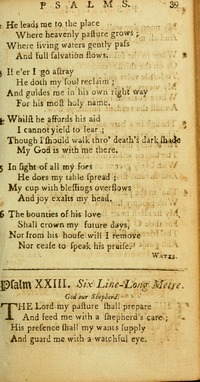 PSALMS. 39
He leads me to the place
Where heavenly pasture grows;
Where living waters gently pass
And full salvation flows.
3 If e'er I go astray
He doth my soul reclaim;
And guides me in his own right way
For his most holy name.
4 Whilst he affords his aid
I cannot yield to fear;
Though I should walk thro' death's dark shade
My God is with me there.
5 In sight of all my foes
He does my table spread;
My cup with blessings overflows
And joy exalts my head.
6 The bounties of his love
Shall crown my future days,
Nor from his house will I remove
Nor cease to speak his praise.
WATTS.
Psalm XXIII. Six Line-Long Metre.
God our Shepherd.
THE Lord my pasture shall prepare
And feed me with a shepherd's care;
His presence shall my wants supply
And guard me with a watchful eye.